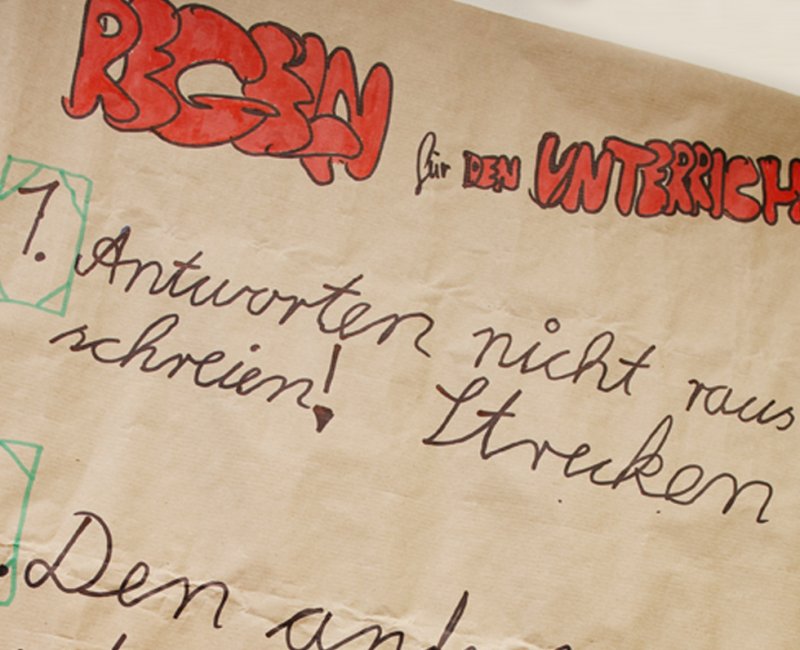 REGELN für DEN UNTERRICH
1. Antworten nicht raus
schreien! Strecken
Den and